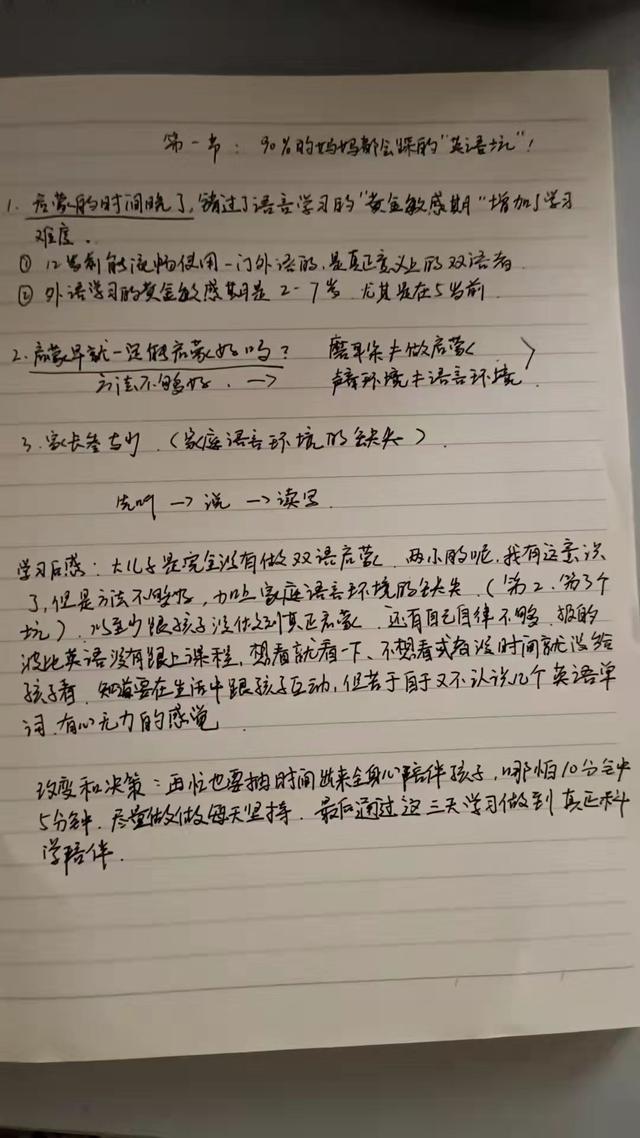 第一节：90%的妈妈都会踩的“英语坑”！
1. 启蒙的时间晚了，错过了语言学习的“黄金敏感期”增加了学习
难度。
① 12岁前能流畅使用一门外语的，是真正意义上的双语者。
② 外语学习的黄金敏感期是2-7岁 尤其是在5岁前.
2. 启蒙早就一定能启蒙好吗？ 磨耳朵≠做启蒙
方法不够好. → 声音环境≠语言环境.
3. 家长参与少.（家庭语言环境的缺失）.
先听 → 说 → 读写.
学习后感：大儿子是完全没有做双语启蒙. 两小的呢，我有这意识
了，但是方法不够好，加上家庭语言环境的缺失（第2、第3个
坑）. 以至少跟孩子没做到真正启蒙. 还有自己自律不够. 报的
波比英语没有跟上课程，想看就看一下、不想看或者没时间就没给
孩子看. 知道要在生活中跟孩子互动，但苦于自于又不认识几个英语单
词. 有心无力的感觉
改变和决策：再忙也要抽时间出来全身心陪伴孩子，哪怕10分钟
5分钟. 尽量做做每天坚持. 最后通过这三天学习做到真正科
学陪伴.